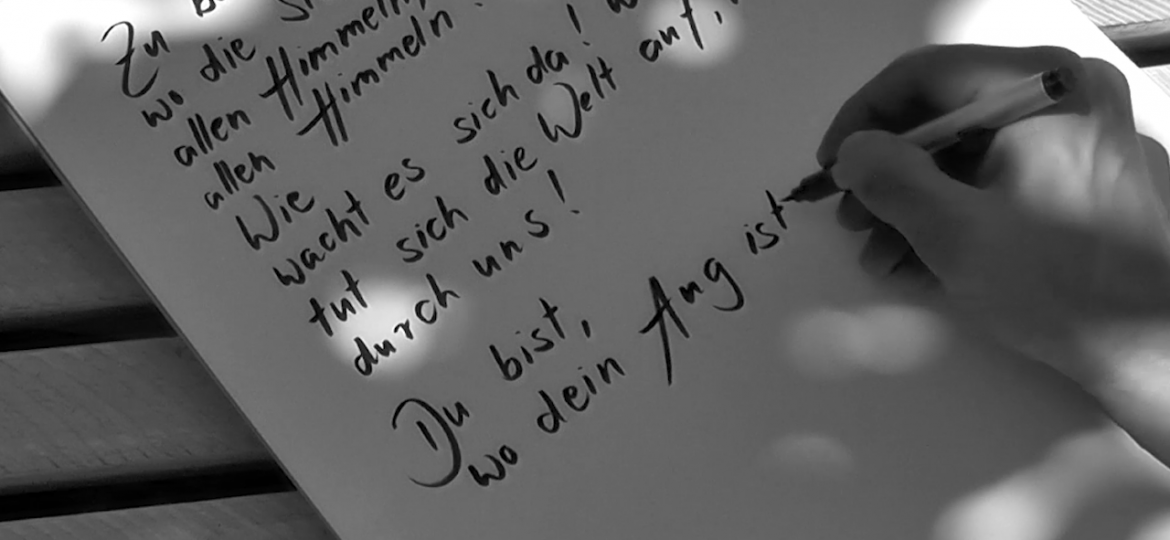 Zu
wo die
allen Himmeln,
allen Himmeln.
Wie
wacht es sich da!
tut sich die Welt auf,
durch uns!
Du bist,
wo dein Aug ist